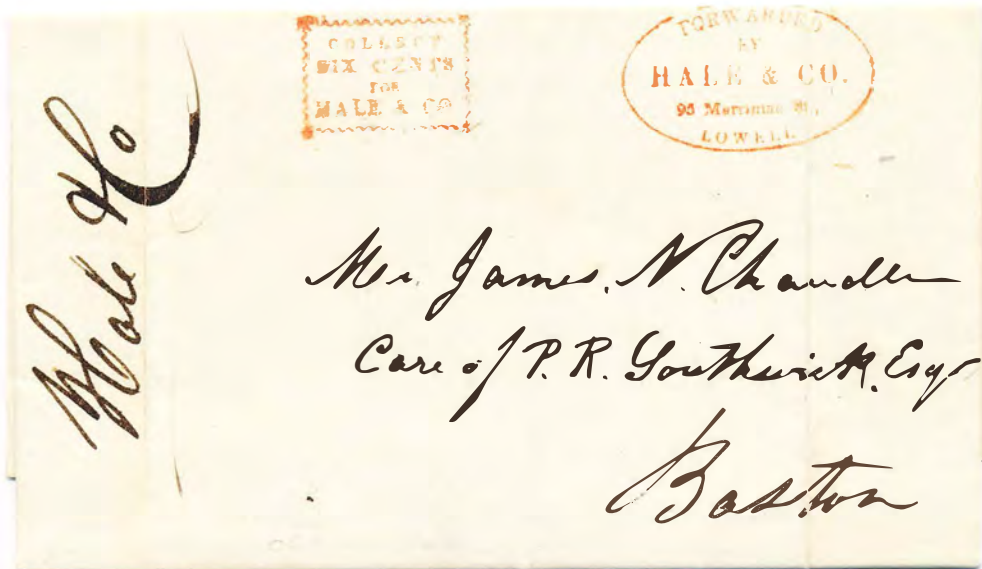 COLLECT
SIX CENTS
FOR
HALE & CO
FORWARDED
BY
HALE & CO.
95 Merrimac St.,
LOWELL
Hale & Co
Mr James. N. Chandler
Care of P. R. Southwick, Esqr
Boston